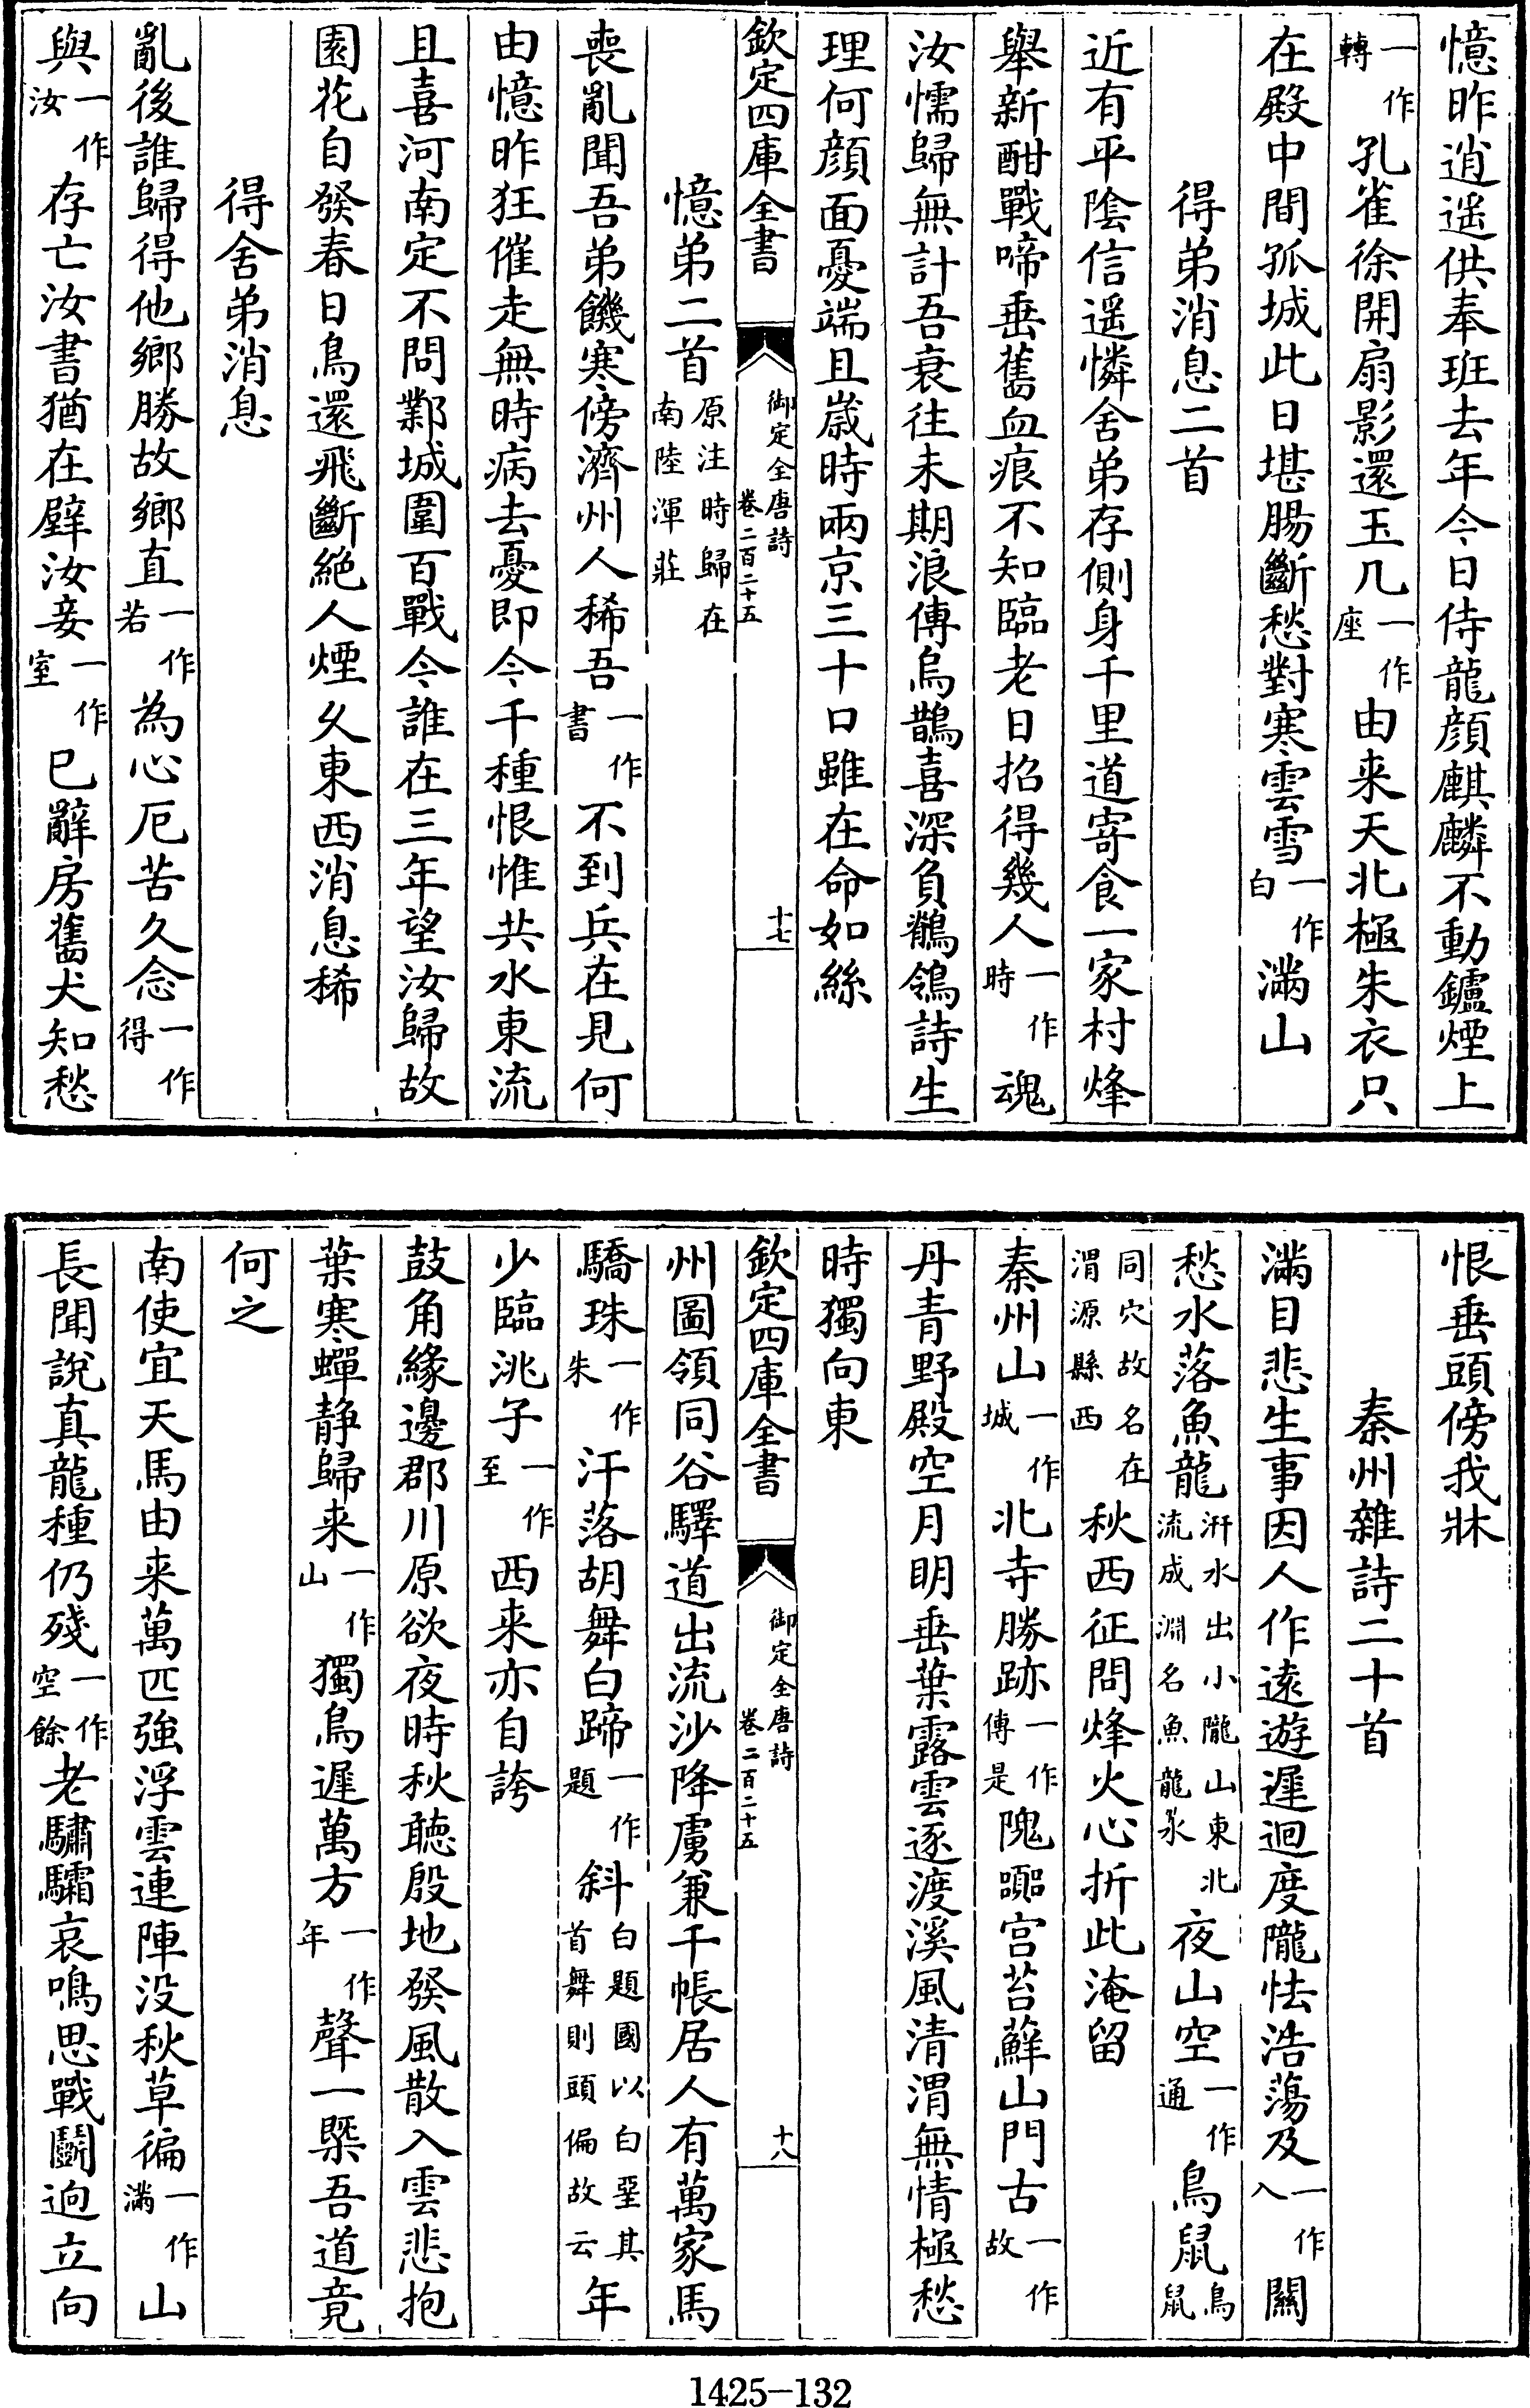 憶昨逍遥供奉班去年今日侍龍顔麒麟不動鑪煙上
一作轉孔雀徐開扇影還玉几一作座由来天北極朱衣只
在殿中間孤城此日堪腸斷愁對寒雲雪一作白滿山
得弟消息二首
近有平隂信遥憐舍弟存側身千里道寄食一家村烽
舉新酣戰啼垂舊血痕不知臨老日招得幾人一作時魂
汝懦歸無計吾衰往未期浪傳烏鵲喜深負鶺鴒詩生
理何顔面憂端且嵗時兩京三十口雖在命如絲
欽定四庫全書 御定全唐詩 卷二百二十五 十七
憶弟二首原注時歸在南陸渾莊
喪亂聞吾弟饑寒傍濟州人稀吾一作書不到兵在見何
由憶昨狂催走無時病去憂即今千種恨惟共水東流
且喜河南定不問鄴城圍百戰今誰在三年望汝歸故
園花自發春日鳥還飛斷絶人煙久東西消息稀
得舍弟消息
亂後誰歸得他鄉勝故鄉直一作若為心厄苦久念一作得
與一作汝存亡汝書猶在壁汝妾一作室已辭房舊犬知愁
恨垂頭傍我牀
秦州雜詩二十首
滿目悲生事因人作遠遊遲迴度隴怯浩蕩及一作入關
愁水落魚龍汧水出小隴山東北流成淵名魚龍永夜山空一作通鳥鼠鳥鼠
同穴故名在渭源縣西秋西征問烽火心折此淹留
秦州山一作城北寺勝跡一作傳是隗囂宫苔蘚山門古一作故
丹青野殿空月明垂葉露雲逐渡溪風清渭無情極愁
時獨向東
欽定四庫全書 御定全唐詩 卷二百二十五 十八
州圖領同谷驛道出流沙降虜兼千帳居人有萬家馬
驕珠一作朱汗落胡舞白蹄一作題斜白題國以白堊其首舞則頭偏故云年
少臨洮子一作至西来亦自誇
鼓角緣邊郡川原欲夜時秋聴殷地發風散入雲悲抱
葉寒蟬静歸来一作山獨鳥遲萬方一作年聲一槩吾道竟
何之
南使宜天馬由来萬匹強浮雲連陣没秋草徧一作滿山
長聞說真龍種仍殘一作空餘老驌驦哀鳴思戰鬭迥立向
1425-132